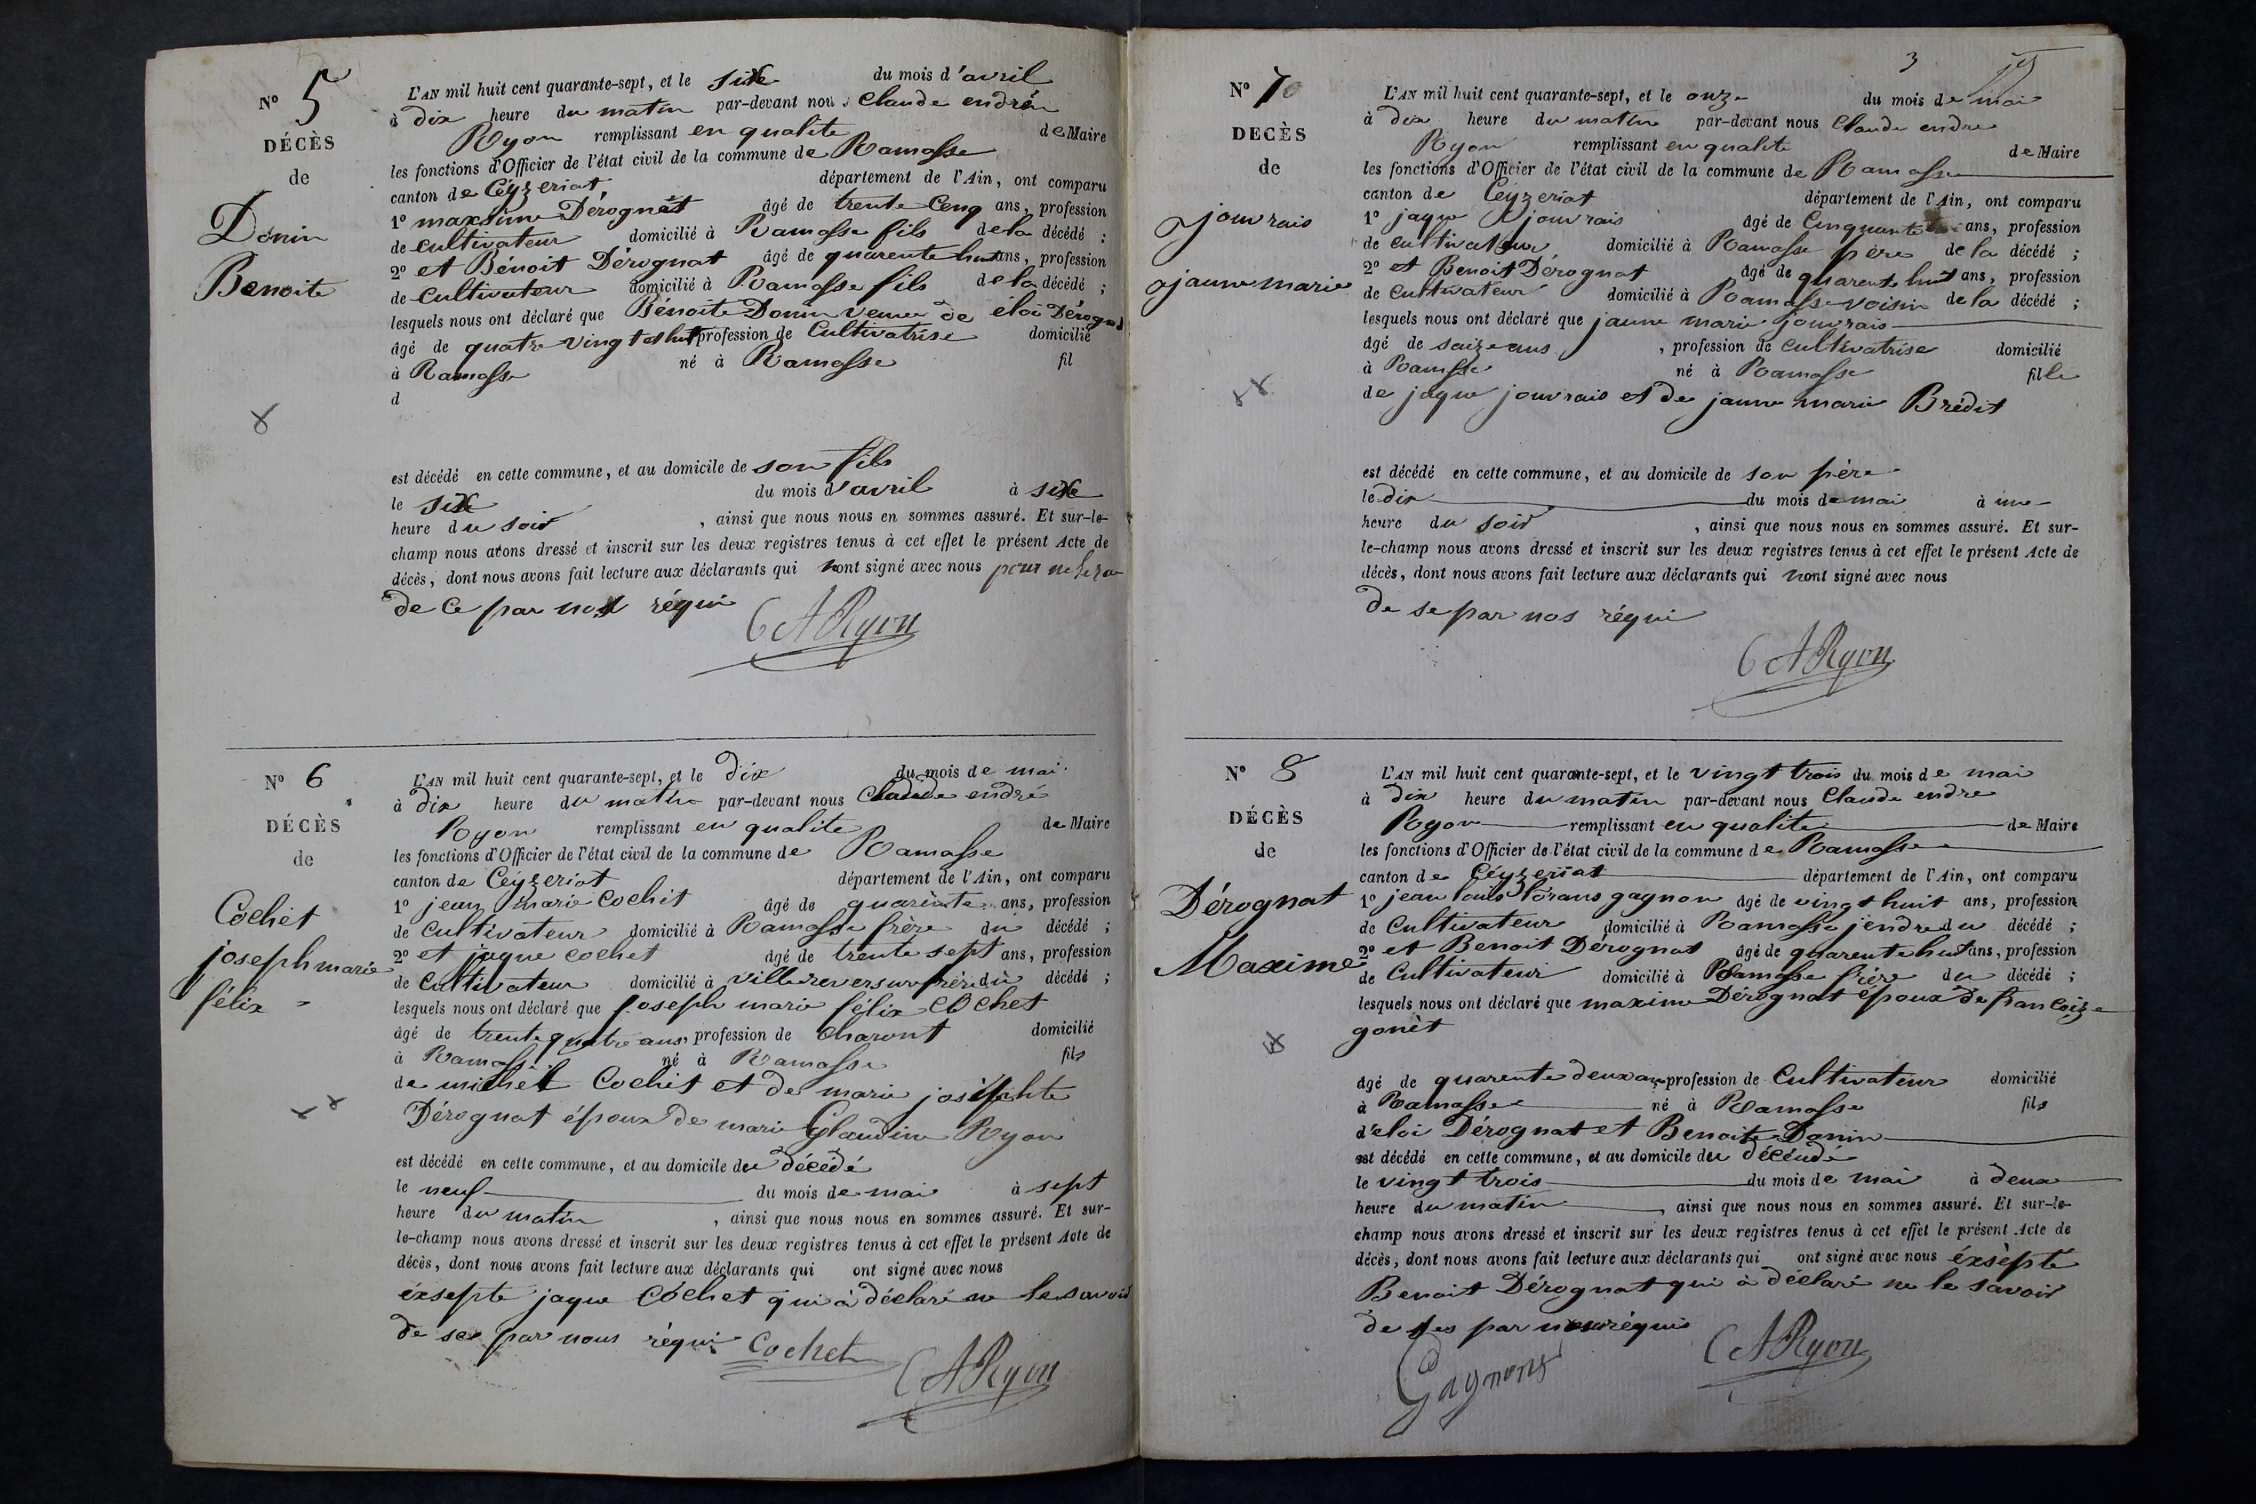 N° 5
DÉCÈS
de
Donin
Benoite
L'AN mil huit cent quarante-sept, et le sixe du mois d'avril
à dix heure du matin par-devant nous Claude endré
Ryon remplissant en qualite de Maire
les fonctions d'Officier de l'état civil de la commune de Ramasse
canton de Céyzeriat département de l'Ain, ont comparu
1° maxime Dérognat âgé de trente Cenq ans, profession
de cultivateur domicilié à Ramasse fils de la décédé ;
2° et Bénoit Dérognat âgé de quarente huit ans, profession
de Cultivateur domicilié à Ramasse fils de la décédé ;
lesquels nous ont déclaré que Bénoite Donin veuve de éloi Dérognat
âgé de quatre vingt et huit profession de Cultivatrise domicilié
à Ramasse né à Ramasse fil
d
est décédé en cette commune, et au domicile de son fils
le sixe du mois d'avril à sixe
heure du soir , ainsi que nous nous en sommes assuré. Et sur-le-
champ nous avons dressé et inscrit sur les deux registres tenus à cet effet le présent Acte de
décès, dont nous avons fait lecture aux déclarants qui nont signé avec nous pour ne
de ce par nos réqui
C A Ryon
N° 6
DÉCÈS
de
Cochet
joseph marie
félix
L'AN mil huit cent quarante-sept, et le dix du mois de mai
à dix heure du matin par-devant nous Claude endré
Ryon remplissant en qualite de Maire
les fonctions d'Officier de l'état civil de la commune de Ramasse
canton de Céyzeriat département de l'Ain, ont comparu
1° jean marie Cochet âgé de quarente ans, profession
de cultivateur domicilié à Ramasse frère du décédé ;
2° et jaque cochet âgé de trente sept ans, profession
de Cultivateur domicilié à villereversure frère du décédé ;
lesquels nous ont déclaré que joseph marie félix Cochet
âgé de trente quatre ans profession de Charont domicilié
à Ramasse né à Ramasse fils
de michel Cochet et de marie josephte
Dérognat époux de marie Glaudine Ryon
est décédé en cette commune, et au domicile du décédé
le neuf du mois de mai à sept
heure du matin , ainsi que nous nous en sommes assuré. Et sur-
le-champ nous avons dressé et inscrit sur les deux registres tenus à cet effet le présent Acte de
décès, dont nous avons fait lecture aux déclarants qui ont signé avec nous
éxsepte jaque Cochet qui à déclaré ne le savoir
de ses par nous réqui Cochet
C A Ryon
3
N° 7
DECÈS
de
jouvrais
jaune marie
L'AN mil huit cent quarante-sept, et le onze du mois de mai
à dix heure du matin par-devant nous Claude endre
Ryon remplissant en qualite de Maire
les fonctions d'Officier de l'état civil de la commune de Ramasse
canton de Céyzeriat département de l'Ain, ont comparu
1° jaque jouvrais âgé de Cinquante ans, profession
de cultivateur domicilié à Ramasse père de la décédé ;
2° et Benoit Dérognat âgé de quarente huit ans, profession
de Cultivateur domicilié à Ramasse voisin de la décédé ;
lesquels nous ont déclaré que jaune marie jouvrais
âgé de saize ans , profession de cultivatrise domicilié
à Ramsse né à Ramasse fille
de jaque jouvrais et de jaune marie Brédit
est décédé en cette commune, et au domicile de son père
le dix du mois de mai à une
heure du soir , ainsi que nous nous en sommes assuré. Et sur-
le-champ nous avons dressé et inscrit sur les deux registres tenus à cet effet le présent Acte de
décès, dont nous avons fait lecture aux déclarants qui nont signé avec nous
de se par nos réqui
C A Ryon
N° 8
DÉCÈS
de
Dérognat
Maxime
L'AN mil huit cent quarante-sept, et le vingt trois du mois de mai
à dix heure du matin par-devant nous Claude endre
Ryon remplissant en qualite de Maire
les fonctions d'Officier de l'état civil de la commune de Ramasse
canton de Céyzeriat département de l'Ain, ont comparu
1° jean louis lorans gagnon âgé de vingt huit ans, profession
de Cultivateur domicilié à Ramasse jendre du décédé ;
2° et Benoit Dérognat âgé de quarente huit ans, profession
de Cultivateur domicilié à Ramasse frère du décédé ;
lesquels nous ont déclaré que maxime Dérognat époux de francoize
gonèt
âgé de quarente deux ans profession de Cultivateur domicilié
à Ramasse né à Ramasse fils
d'eloi Dérognat et Benoite Donin
est décédé en cette commune, et au domicile du décéude
le vingt trois du mois de mai à deux
heure du matin , ainsi que nous nous en sommes assuré. Et sur-le-
champ nous avons dressé et inscrit sur les deux registres tenus à cet effet le présent Acte de
décès, dont nous avons fait lecture aux déclarants qui ont signé avec nous éxsèpté
Benoit Dérognat qui à déclaré ne le savoir
de ses par nous réquis
Gagnons
C A Ryon